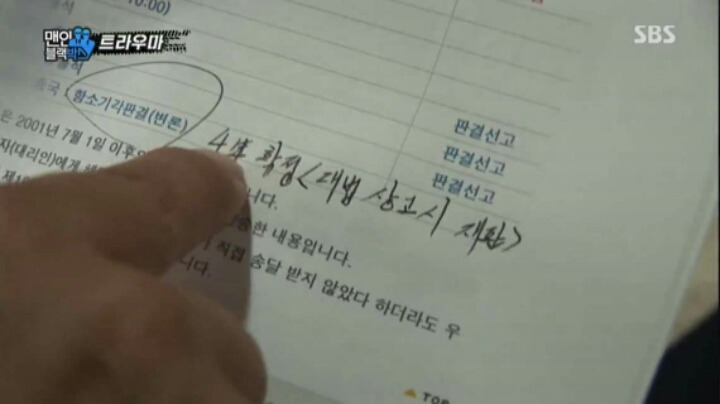 10:00)
맨인
블랙박스
트라우마
SBS
항소기각판결(변론)
판결선고
판결선고
판결선고
4年 확정<대법 상고시 재판>
은 2001년 7월 1일 이후
자(대리인)에게
니다.
한 내용입니다.
직접 송달 받지 않았다 하더라도 우
니다.
TOP